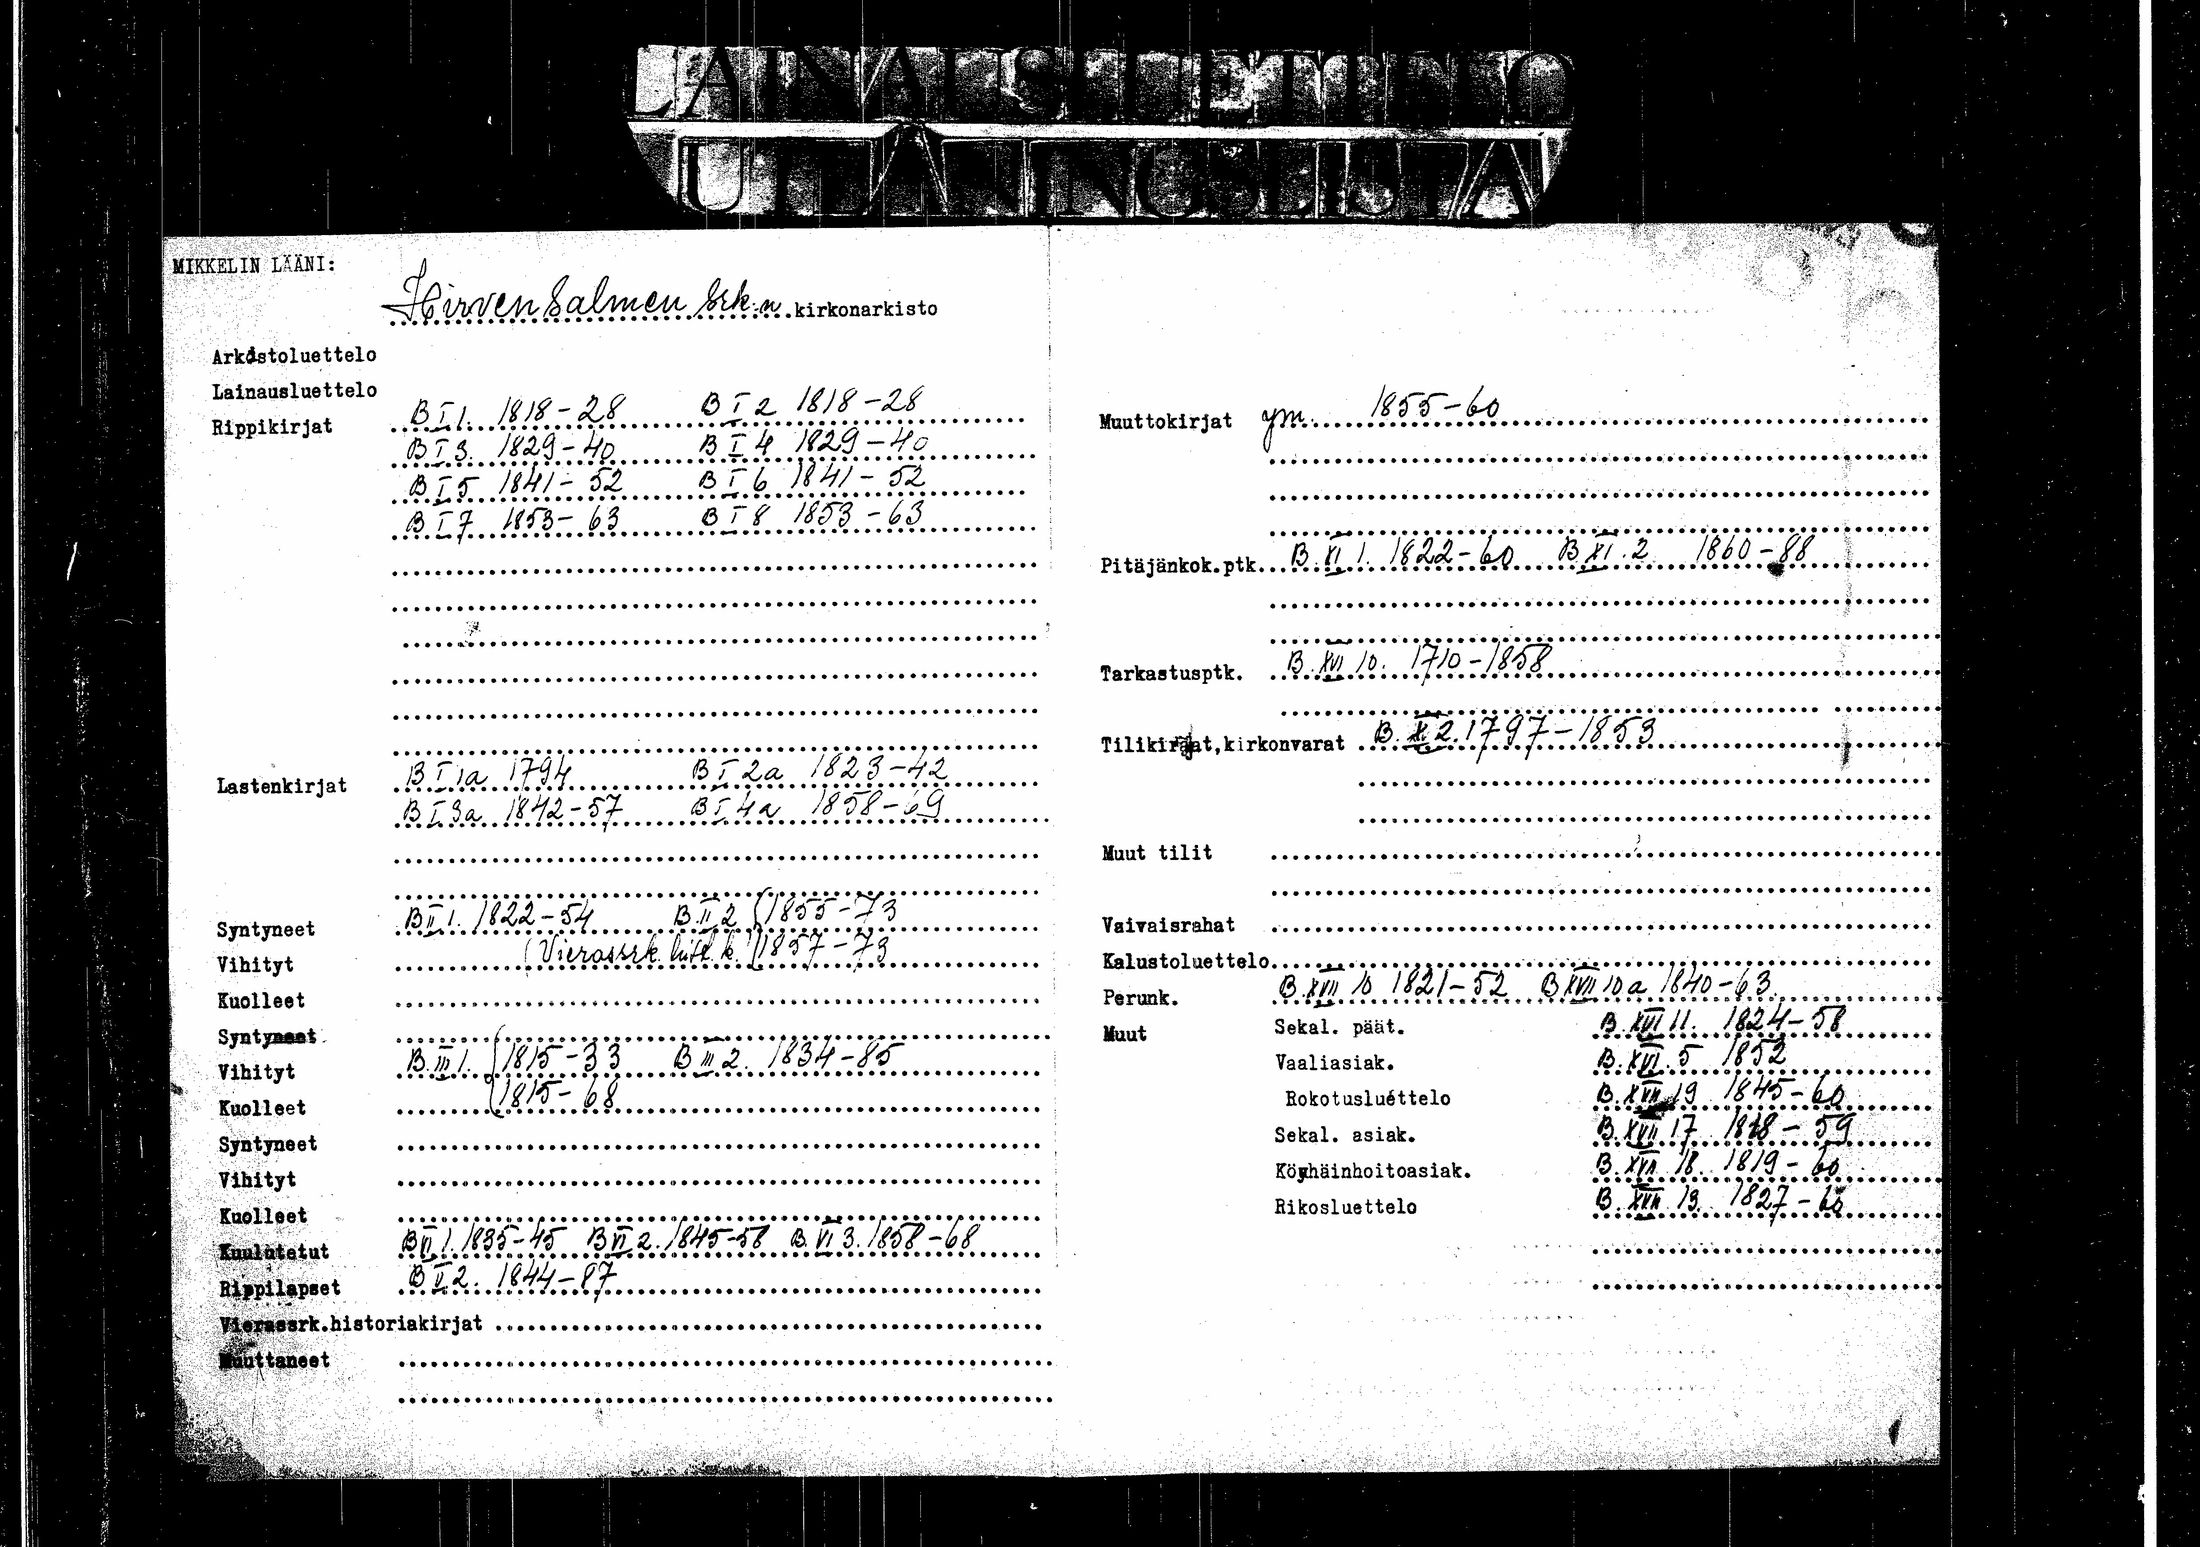 LAINAUSLUETTELO
UTLÅNINGSLISTA
MIKKELIN LÄÄNI:
Hirvensalmen srk:n kirkonarkisto
Arkistoluettelo
Lainausluettelo
Rippikirjat B I 1. 1818-28 B I 2 1818-28
B I 3. 1829-40 B I 4 1829-40
B I 5 1841-52 B I 6 1841-52
B I 7 1853-63 B I 8 1853-63
Lastenkirjat B I 1a 1794 B I 2a 1823-42
B I 3a 1842-57 B I 4a 1858-69
Syntyneet B II 1. 1822-54 B II 2 1855-73
Vihityt (Vierassrk. hist. k.) 1857-73
Kuolleet
Syntyneet
Vihityt B III 1. 1815-33 B III 2. 1834-85
Kuolleet 1815-68
Syntyneet
Vihityt
Kuolleet
Kuulutetut B VI 1. 1835-45 B VI 2. 1845-58 B VI 3. 1858-68
Rippilapset B V 2. 1844-87
Vierassrk.historiakirjat
Muuttaneet
Muuttokirjat ym. 1855-60
Pitäjänkok.ptk. B XI 1. 1822-60 B XI 2 1860-88
Tarkastusptk. B XVI 10. 1710-1858
Tilikirjat, kirkonvarat B. 2. 1797-1853
Muut tilit
Vaivaisrahat
Kalustoluettelo
Perunk. B XVII 10 1821-52 B XVII 10a 1840-63
Muut Sekal. päät. B. XVI 11. 1824-58
Vaaliasiak. B. XVI. 5 1852
Rokotusluettelo B. XVII 19 1845-60
Sekal. asiak. B. XVII 17 1818-59
Köyhäinhoitoasiak. B. XVII 18. 1819-60
Rikosluettelo B. XVII 13. 1827-